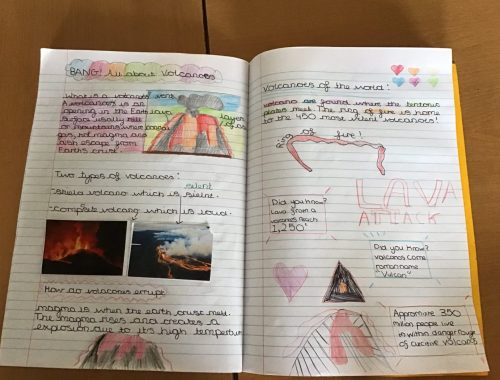 BANG! All about Volcanoes
What is a volcano? vent
A volcanoes is an
opening in the Earth lava
surface usually
or mountains where
gas, hot magma and
ash escape from
Earths crust.
layers
of
Two types of volcanoes:
silent
-shield volcano which is silent.
-composite volcano which is loud.
How do volacoes errupt?
magma is when the earth cruse melt.
The magma rises and creates a
explosion due to its high tempertur
Volcanoes of the world:
volcano are found where the tentonic
plates meet. The ring of fire is home
to the 450 most violent volcanors!
Ring of fire!
Did you know?
Lava from a
volcanoes reach
1,250°
LAVA
ATTACK
Did you know?
volcanos come
roman name
"Vulcan"
Approximtre 350
million people live
in within danger range
of active volcano